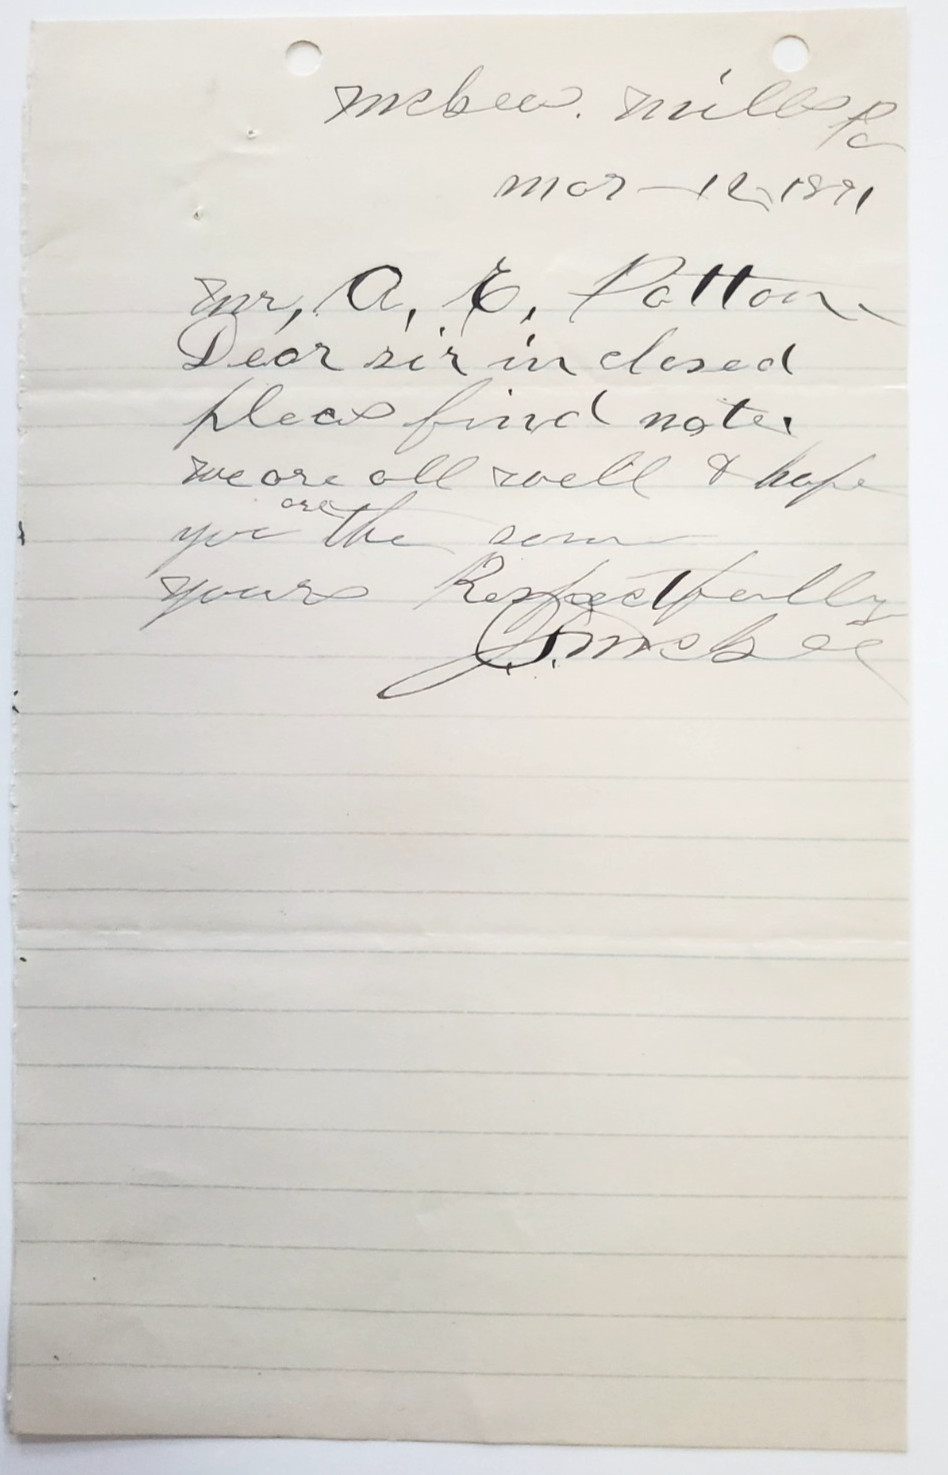 McBees. Mills Pa
Mar - 12, 1891
Mr, A, E, Patton
Dear sir in closed
pleas find note.
we are all well & hope
you are the sam
yours Respectfully
J. S. McBee